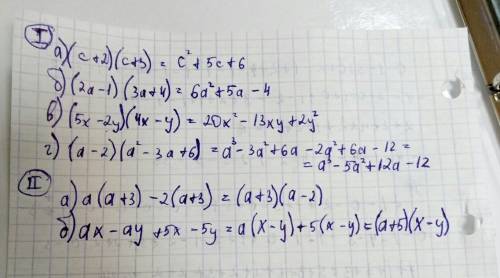 I
а) (c+2)(c+3) = c² + 5c + 6
б) (2a-1)(3a+4) = 6a² + 5a - 4
в) (5x-2y)(4x-y) = 20x² - 13xy + 2y²
г) (a-2)(a²-3a+6) = a³ - 3a² + 6a - 2a² + 6a - 12 =
= a³ - 5a² + 12a - 12
II
а) a(a+3) - 2(a+3) = (a+3)(a-2)
б) ax - ay + 5x - 5y = a(x-y) + 5(x-y) = (a+5)(x-y)